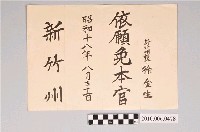 徐金生
依願免本官
昭和十八年 八月
新竹州
2010.006.0478